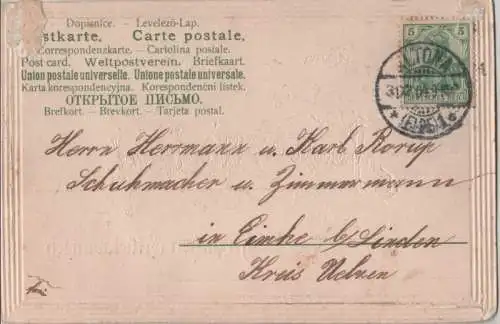 Dopisnice. — Levelezö-Lap.
stkarte. Carte postale.
Correspondenzkarte. — Cartolina postale.
Post card. — Weltpostverein. — Briefkaart.
Union postale universelle. Unione postale universale.
Karta korespondencyjna. Korespondenční listek.
ОТКРЫТОЕ ПИСЬМО.
Brefkort. — Brevkort. — Tarjeta postal.
5 5
ALTONA
31.12
Herrn Herrmann u. Karl Rorup
Schuhmacher u. Zimmermann
in Eimke b/Linden
Kreis Uelzen